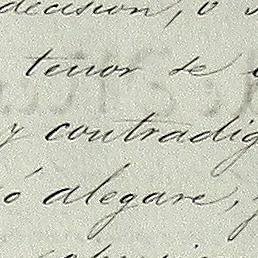 decision, ó
tenor se
y contradig
ó alegare, y